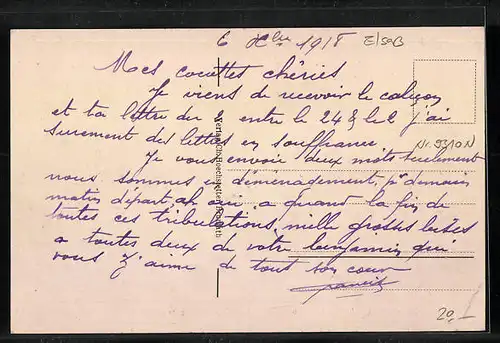 6 Xbre 1918
Elsaß
Mes cocottes chéries
Je viens de recevoir le colis
et ta lettre du entre le 24 & le j'ai
surement des lettres en souffrance
Nr. 5310 N
Je vous envoie deux mots seulement
nous sommes en déménagement, demain
matin départ, ah oui, a quand la fin de
toutes ces tribulations, mille grosses bises
a toutes deux de votre benjamin qui
vous aime de tout son cœur
Verlag Ch. Hochspeter
20,-